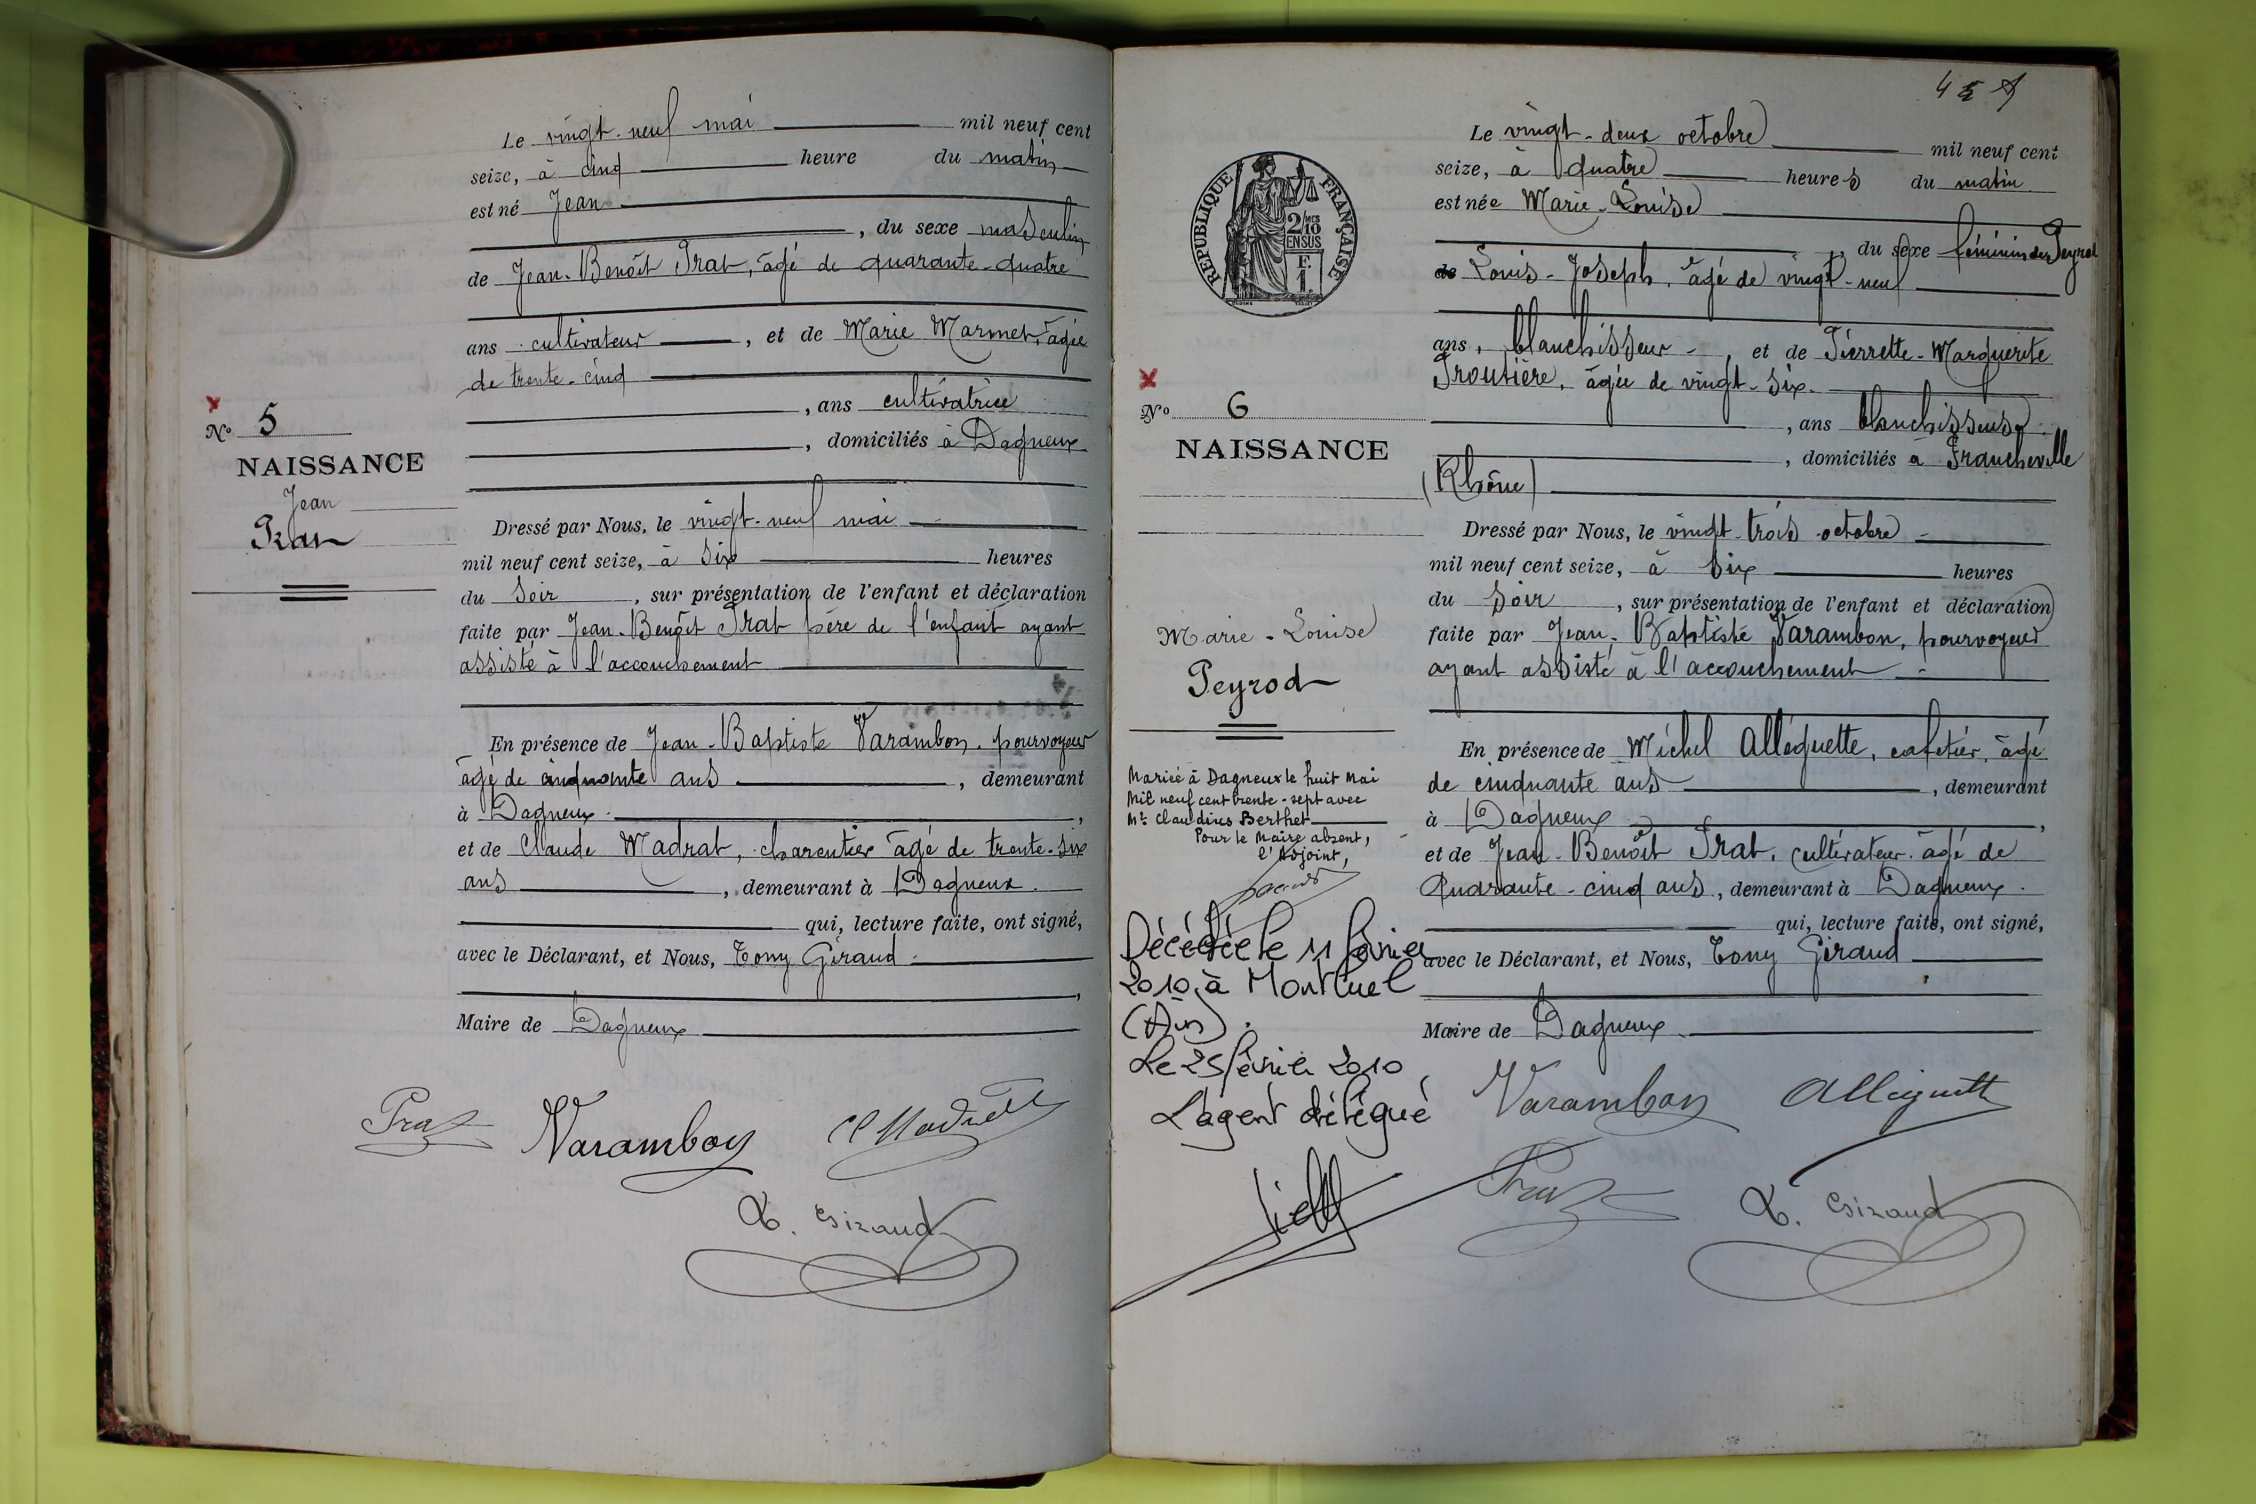 Le vingt-neuf mai mil neuf cent
seize, à cinq heure du matin
est né Jean
, du sexe masculin
de Jean-Benoît Prat, âgé de quarante-quatre
ans cultivateur, et de Marie Marmet, âgée
de trente-cinq
, ans cultivatrice
, domiciliés à Dagneux
Nº 5
NAISSANCE
Jean
Prat
Dressé par Nous, le vingt-neuf mai
mil neuf cent seize, à six heures
du soir, sur présentation de l'enfant et déclaration
faite par Jean-Benoît Prat père de l'enfant ayant
assisté à l'accouchement
En présence de Jean-Baptiste Varambon, pourvoyeur
âgé de cinquante ans, demeurant
à Dagneux.,
et de Claude Madrat, charentier âgé de trente-six
ans, demeurant à Dagneux.
qui, lecture faite, ont signé,
avec le Déclarant, et Nous, Tony Giraud.
,
Maire de Dagneux
Prat Varambon
T. Giraud
4
RÉPUBLIQUE FRANÇAISE
2/10 MES
EN SUS
F.
1.
Le vingt-deux octobre mil neuf cent
seize, à quatre heures du matin
est née Marie-Louise
, du sexe féminin de Peyrod
de Louis-Joseph, âgé de vingt-neuf
ans, blanchisseur, et de Pierrette-Marguerite
Troutière, âgée de vingt-six.
, ans blanchisseuse
, domiciliés à Francheville
(Rhône)
Nº 6
NAISSANCE
Marie-Louise
Peyrod
Dressé par Nous, le vingt-trois octobre
mil neuf cent seize, à six heures
du soir, sur présentation de l'enfant et déclaration
faite par Jean-Baptiste Varambon, pourvoyeur
ayant assisté à l'accouchement
En présence de Michel Alléguette, cafetier, âgé
de cinquante ans, demeurant
à Dagneux,
et de Jean-Benoît Prat, cultivateur âgé de
Quarante-cinq ans, demeurant à Dagneux.
qui, lecture faite, ont signé,
avec le Déclarant, et Nous, Tony Giraud
,
Maire de Dagneux
Mariée à Dagneux le huit Mai
Mil neuf cent trente-sept avec
Mr Claudius Berthet
Pour le Maire absent,
l'Adjoint,
Décédée le 11 février
2010 à Montluel
(Ain).
Le 25 février 2010
L'agent délégué
Varambon Alleguette
Prat
T. Giraud